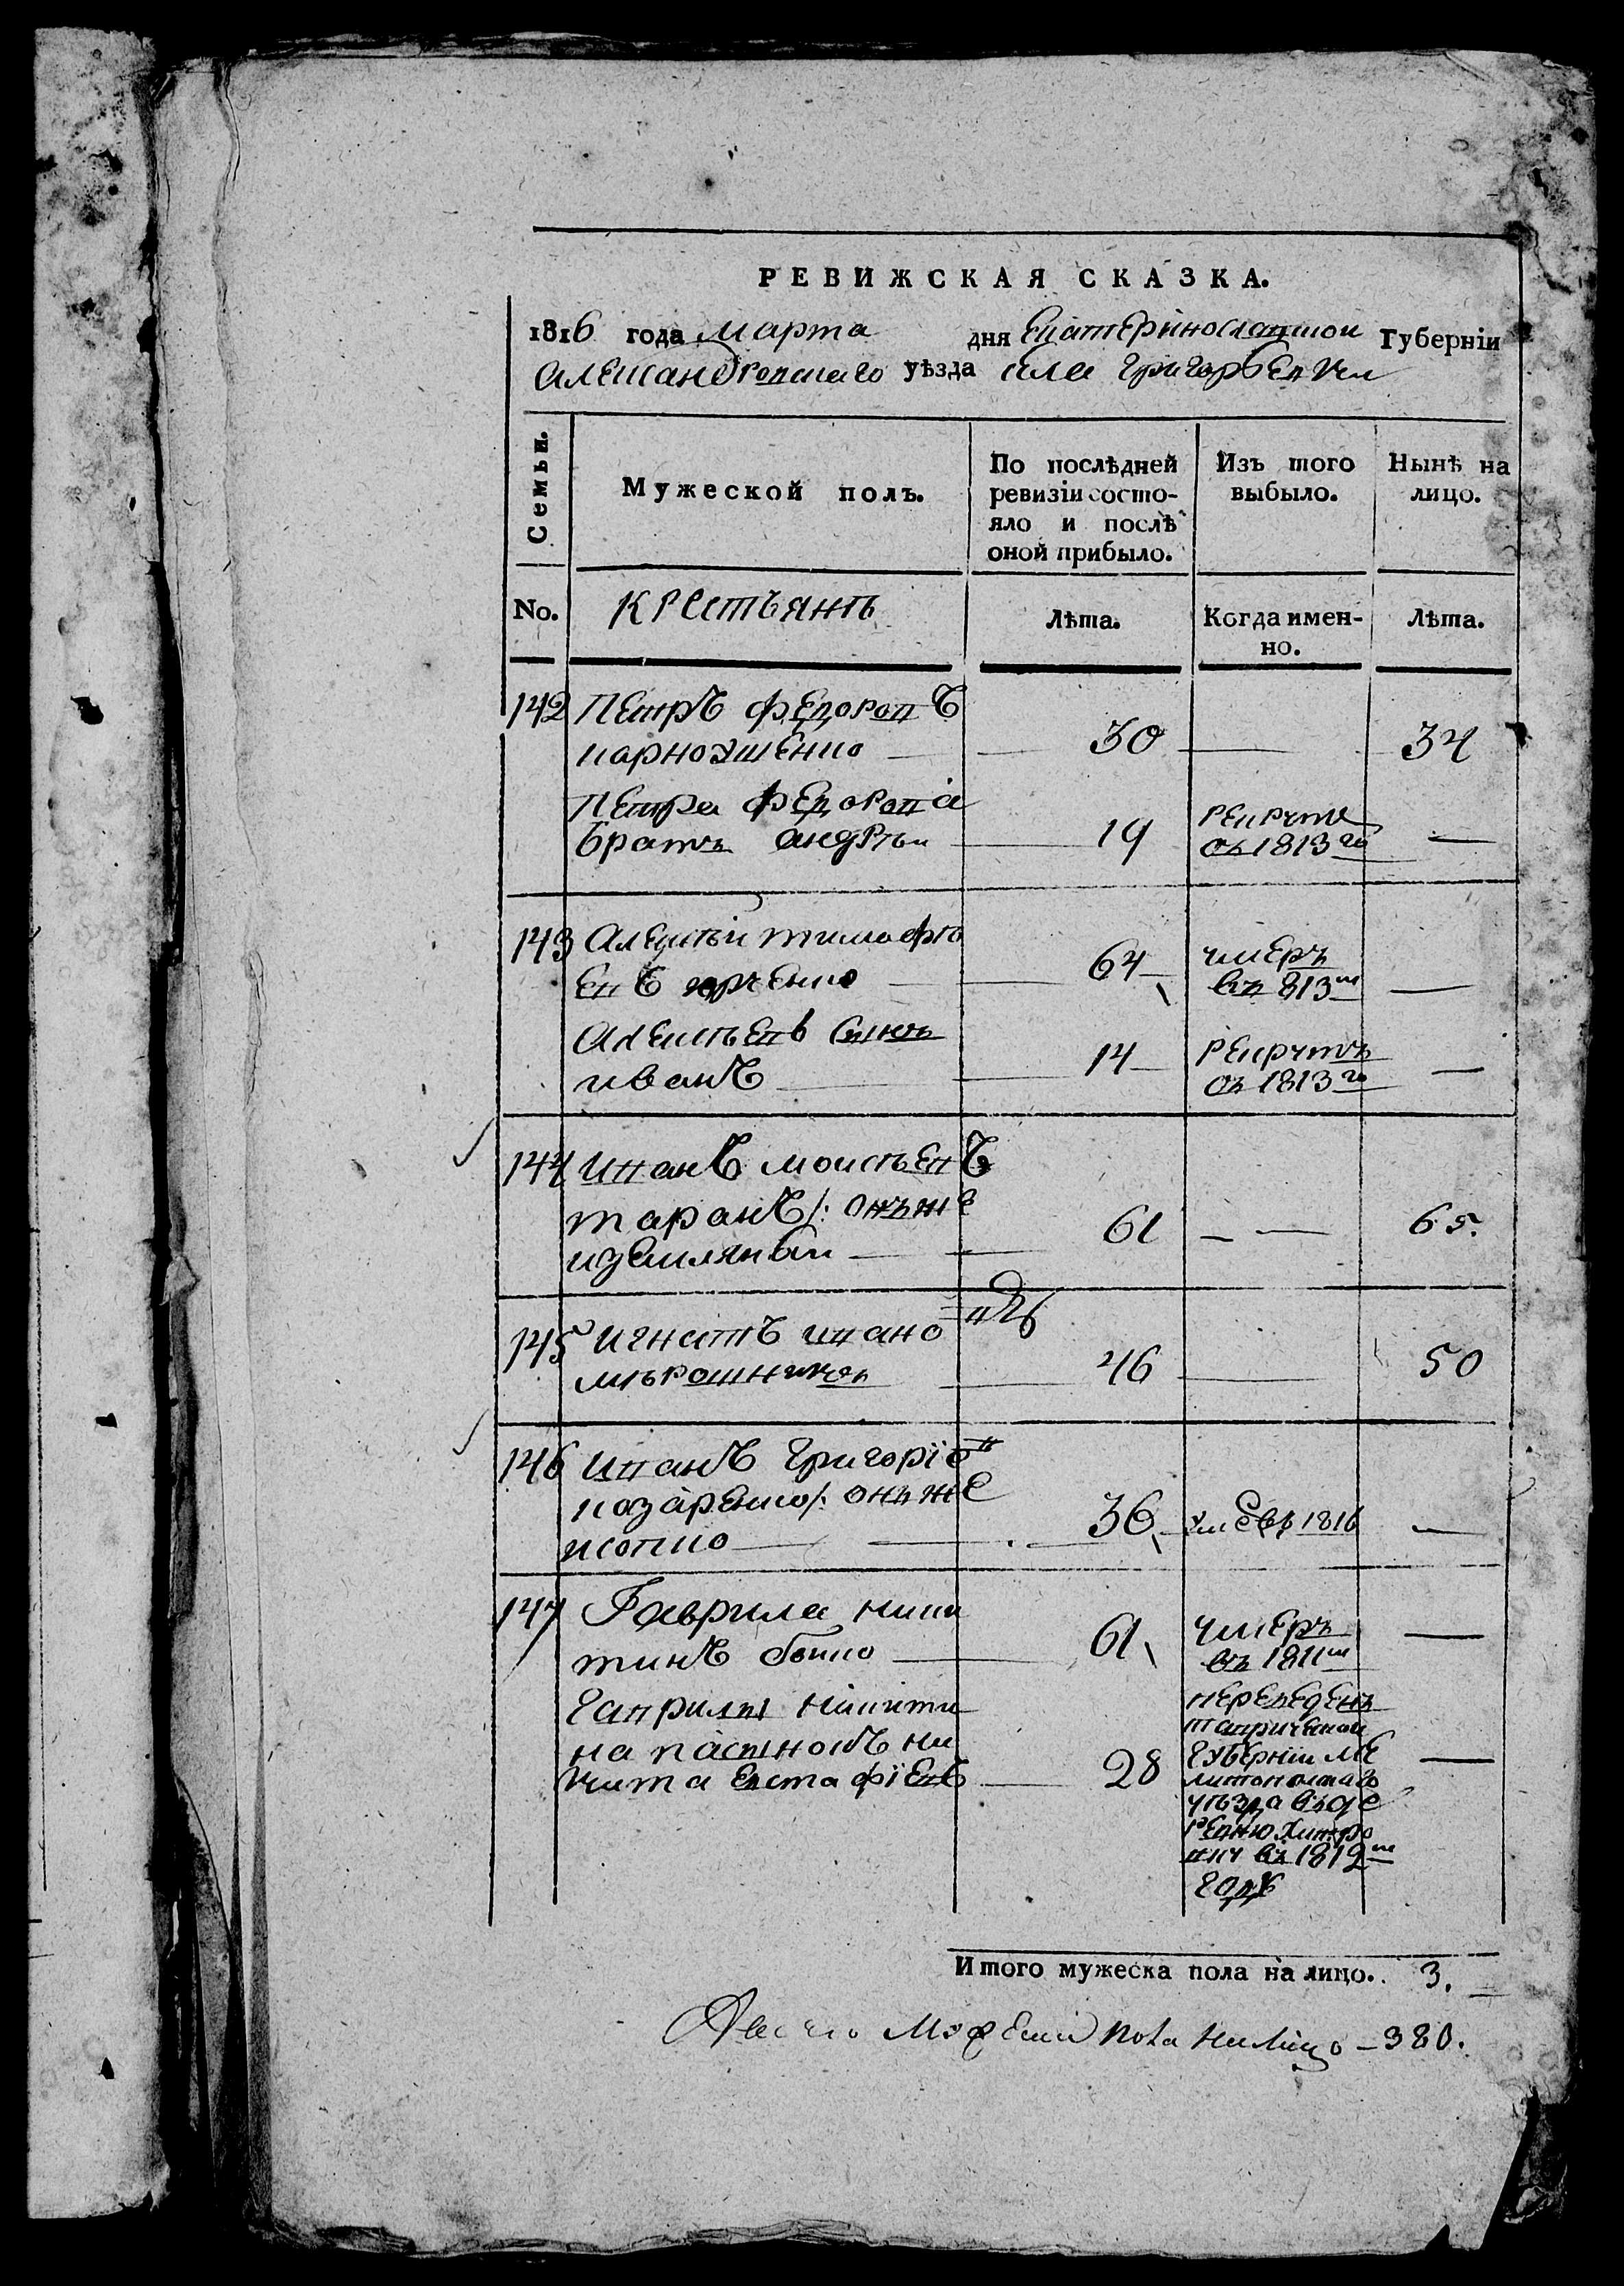 РЕВИЖСКАЯ СКАЗКА.
1816 года марта дня Екатеринославской Губерніи
александровскаго уѣзда села григорьевки
Семьи. Мужеской полъ. По послѣдней ревизіи состояло и послѣ оной прибыло. Изъ того выбыло. Нынѣ на лицо.
No. крестьянъ Лѣта. Когда именно. Лѣта.
142 Петръ федоровъ
парноушенко 30 — 34
Петра федорова
братъ андрѣй 19 рекрутъ
съ 1813го —
143 Алексѣй тимофѣ
евъ юрченко 64 умеръ
въ 813м —
Алексѣевъ сынъ
иванъ 14 рекрутъ
съ 1813го —
144 иванъ моисѣевъ
таранъ /: онъ же
иземляный 61 — 65.
145 игнатъ ивановъ
мѣрошникъ 46 — 50
146 иванъ григоріовъ
козаренко /: онъ же
жовно 36 умеръ 1816 —
147 Гаврила ники
тинъ бойко 61 умеръ
въ 1811м —
гаврилы никити
на пасынокъ ни
кита евстафіевъ 28 переведенъ
таврической
губерніи ме
литополскаго
уѣзда въ де
ревню дмитро
вку въ 1812м
году —
Итого мужеска пола на лицо. . 3.
А всего Мужеска пола на лицо – 380.